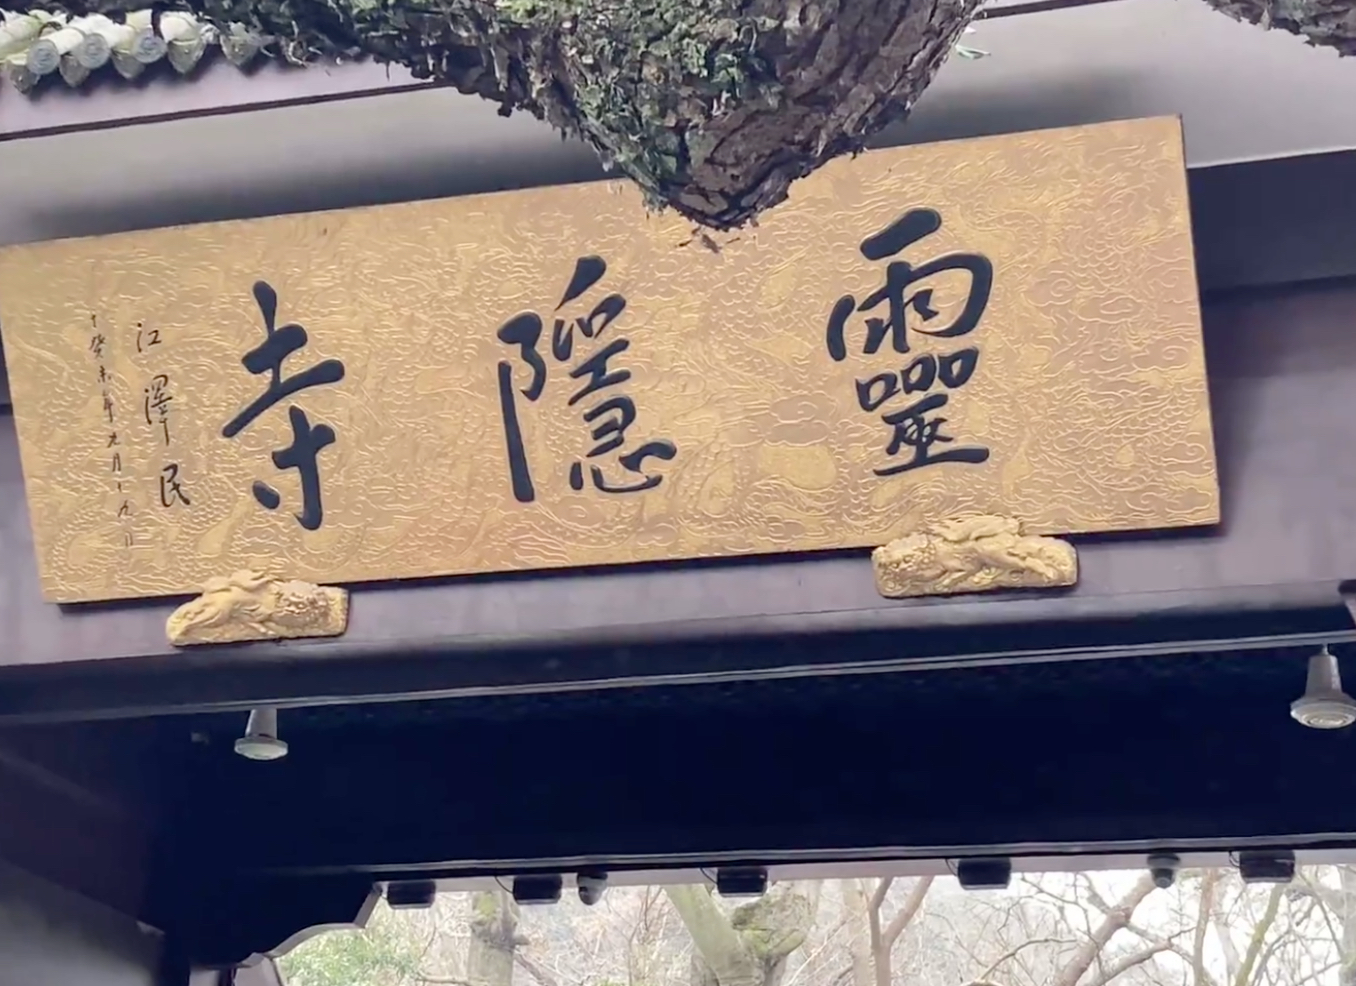 靈隱寺
江澤民
癸未年九月十九日